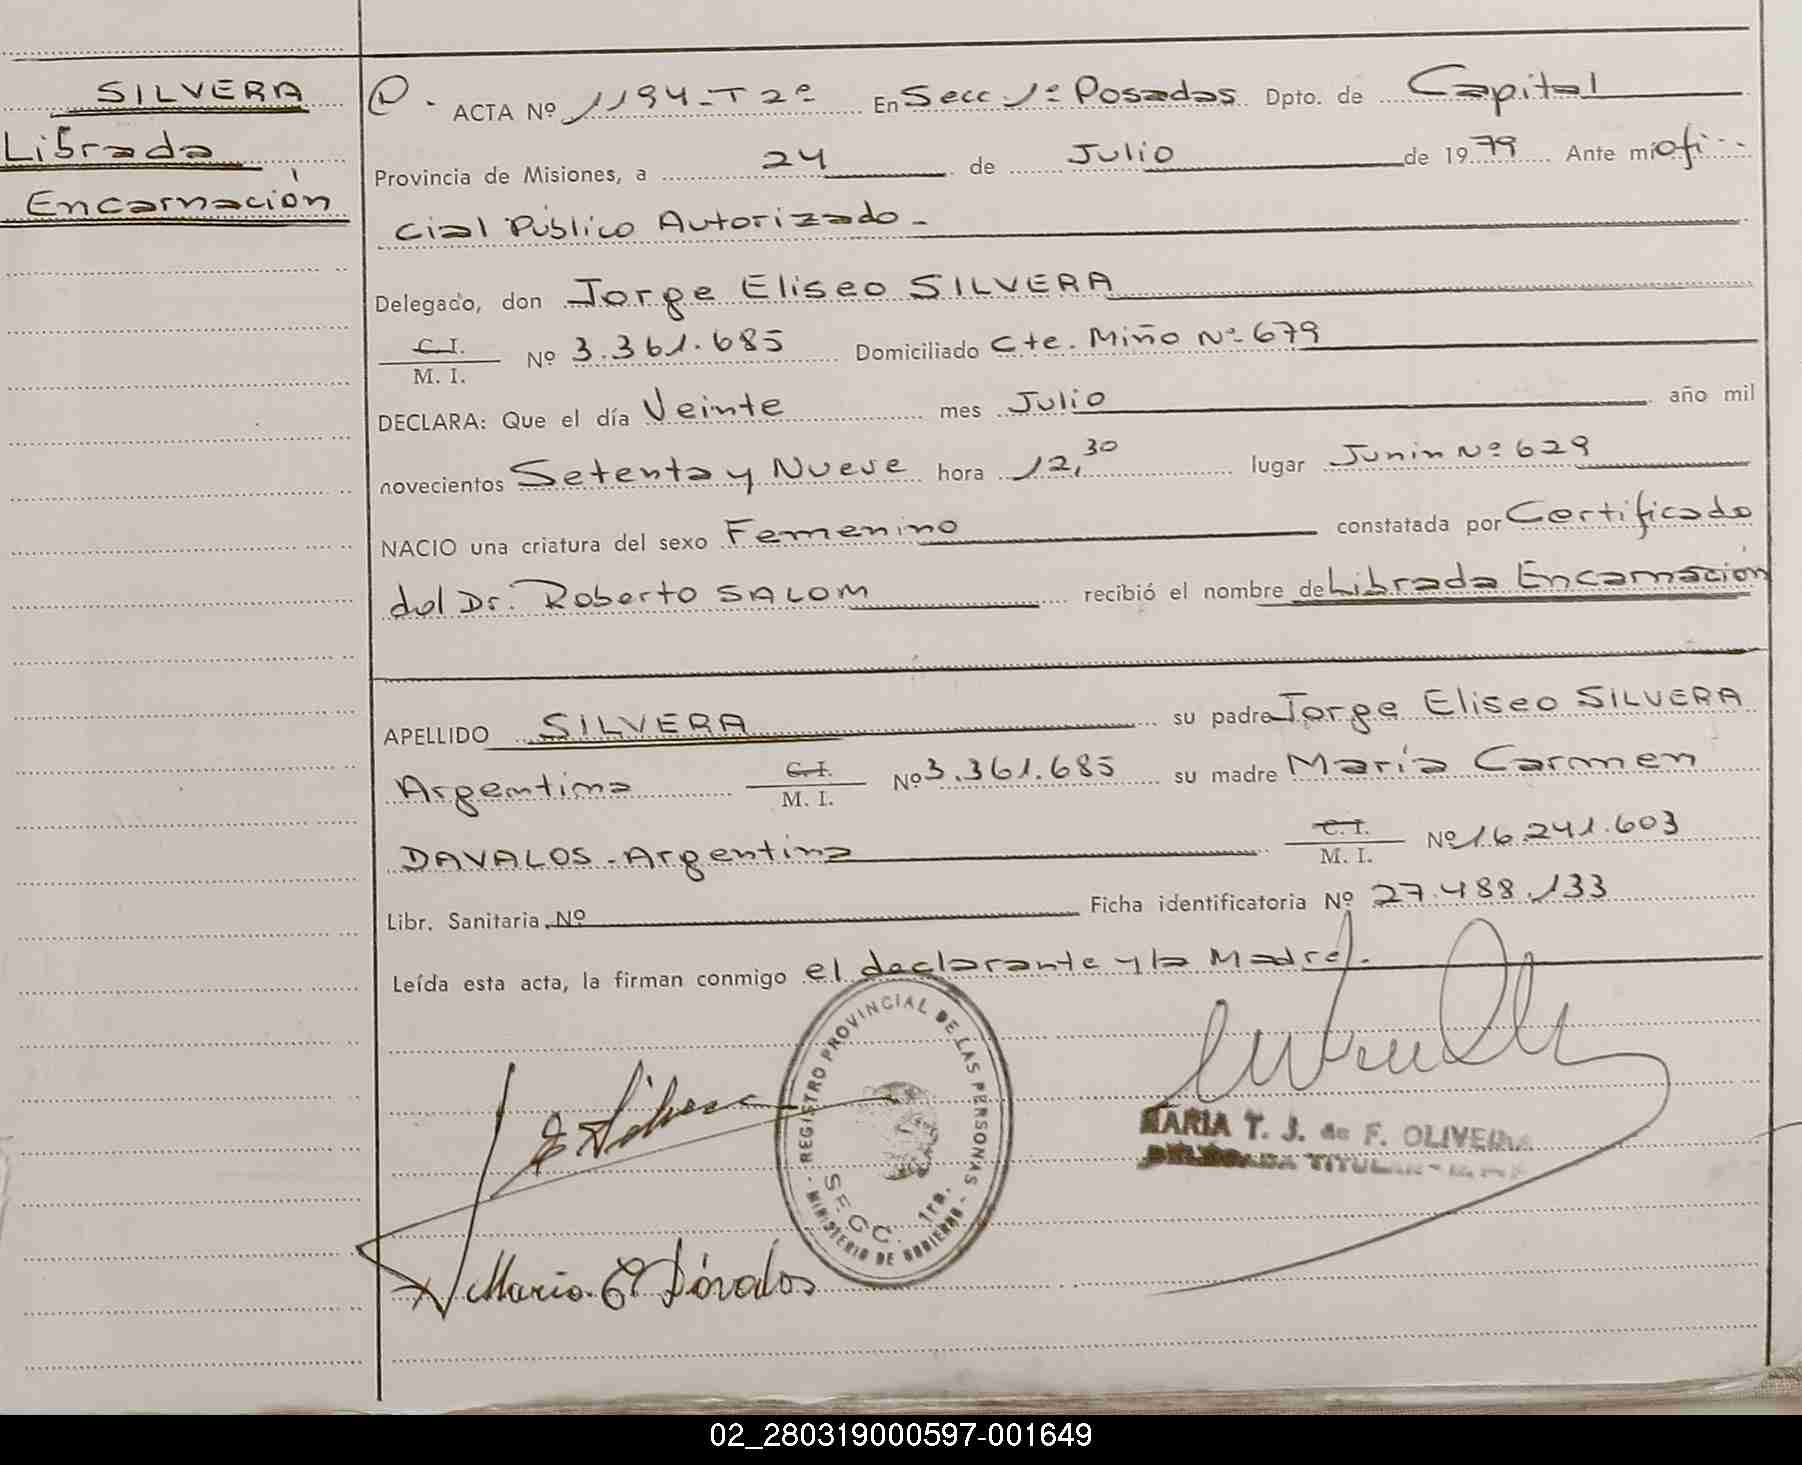 SILVERA
Librada
Encarnación
ACTA Nº 1194-T2º En Secc 1º Posadas Dpto. de Capital
Provincia de Misiones, a 24 de Julio de 1979 Ante mí ofi-
cial Público Autorizado-
Delegado, don Jorge Eliseo SILVERA
C.I. M. I. Nº 3.361.685 Domiciliado Cte. Miño Nº 679
DECLARA: Que el día Veinte mes Julio año mil
novecientos Setenta y Nueve hora 12,30 lugar Junin Nº 629
NACIO una criatura del sexo Femenino constatada por Certificado
del Dr. Roberto SALOM recibió el nombre de Librada Encarnación
APELLIDO SILVERA su padre Jorge Eliseo SILVERA
Argentina C.I. M. I. Nº 3.361.685 su madre María Carmen
DAVALOS-Argentina C.I. M. I. Nº 16.241.603
Libr. Sanitaria Nº Ficha identificatoria Nº 27.488.133
Leída esta acta, la firman conmigo el declarante y la Madre.
REGISTRO PROVINCIAL DE LAS PERSONAS - MINISTERIO DE GOBIERNO -
SECC. 1ra.
MARIA T. J. de F. OLIVEIRA
DELEGADA TITULAR
Maria C Dávalos
02_280319000597-001649